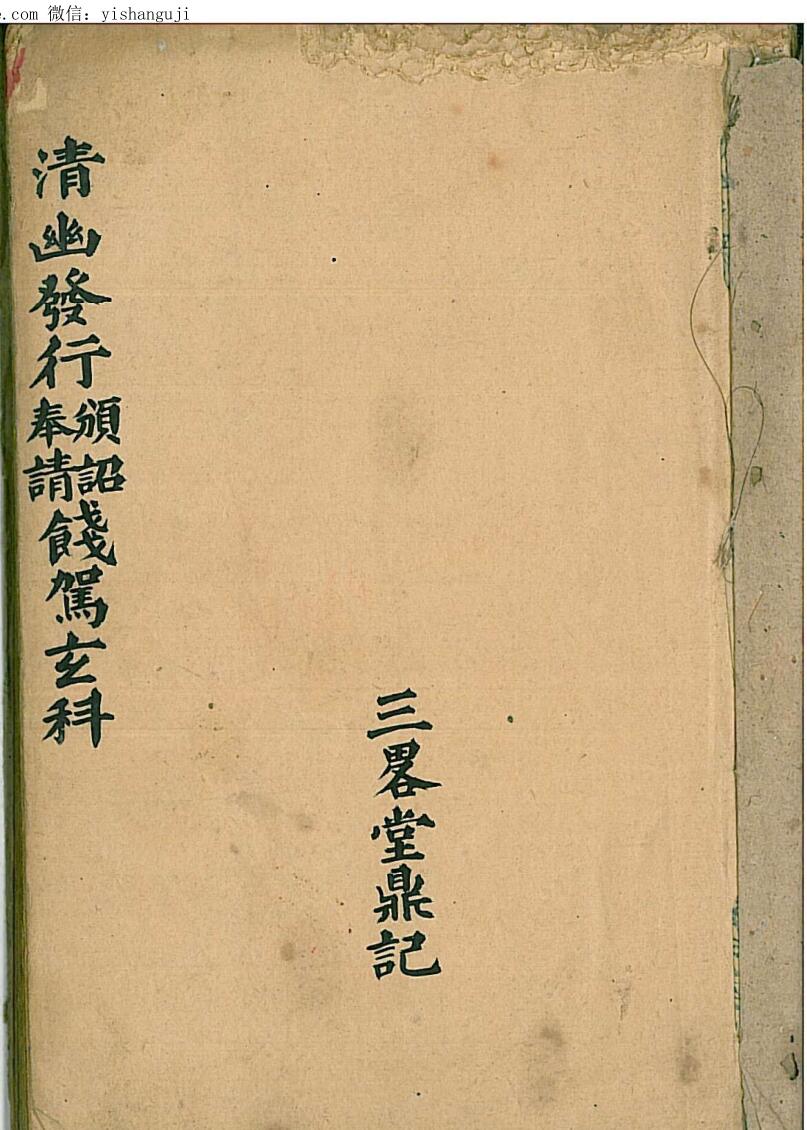 e.com 微信：yishanguji
清幽發行頒詔奉請餞駕玄科
三畧堂鼎記